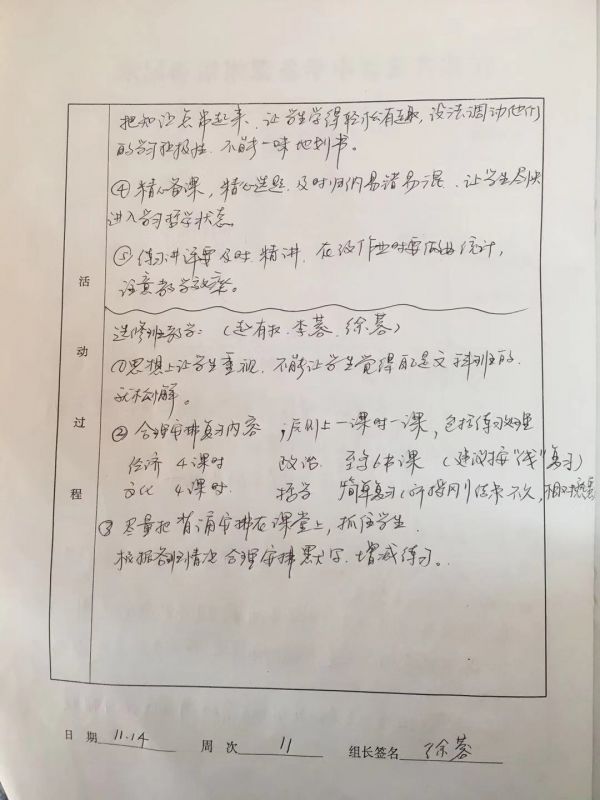 把知识点串起来、让学生学得轻松有趣，设法调动他们
的学习积极性，不能一味地划书。
④精心备课，精心选题，及时归纳易错易混，让学生尽快
进入学习哲学状态。
⑤练习讲评要及时精讲，在改作业时要做好统计，
注意教学效率。
活动过程
选修班教学：（赵有权、李蓉、徐蓉）
①思想上让学生重视，不能让学生觉得自己是文科班的，
就松懈。
②合理安排复习内容，原则上一课时一课，包括练习处理
经济 4课时 政治 至多6节课（建议按“线”复习）
文化 4课时 哲学 简单复习（所授刚结束不久，相对
③尽量把背诵安排在课堂上，抓住学生
根据各班情况合理安排默写、增减练习。
日期 11.14 周次 11 组长签名 徐蓉